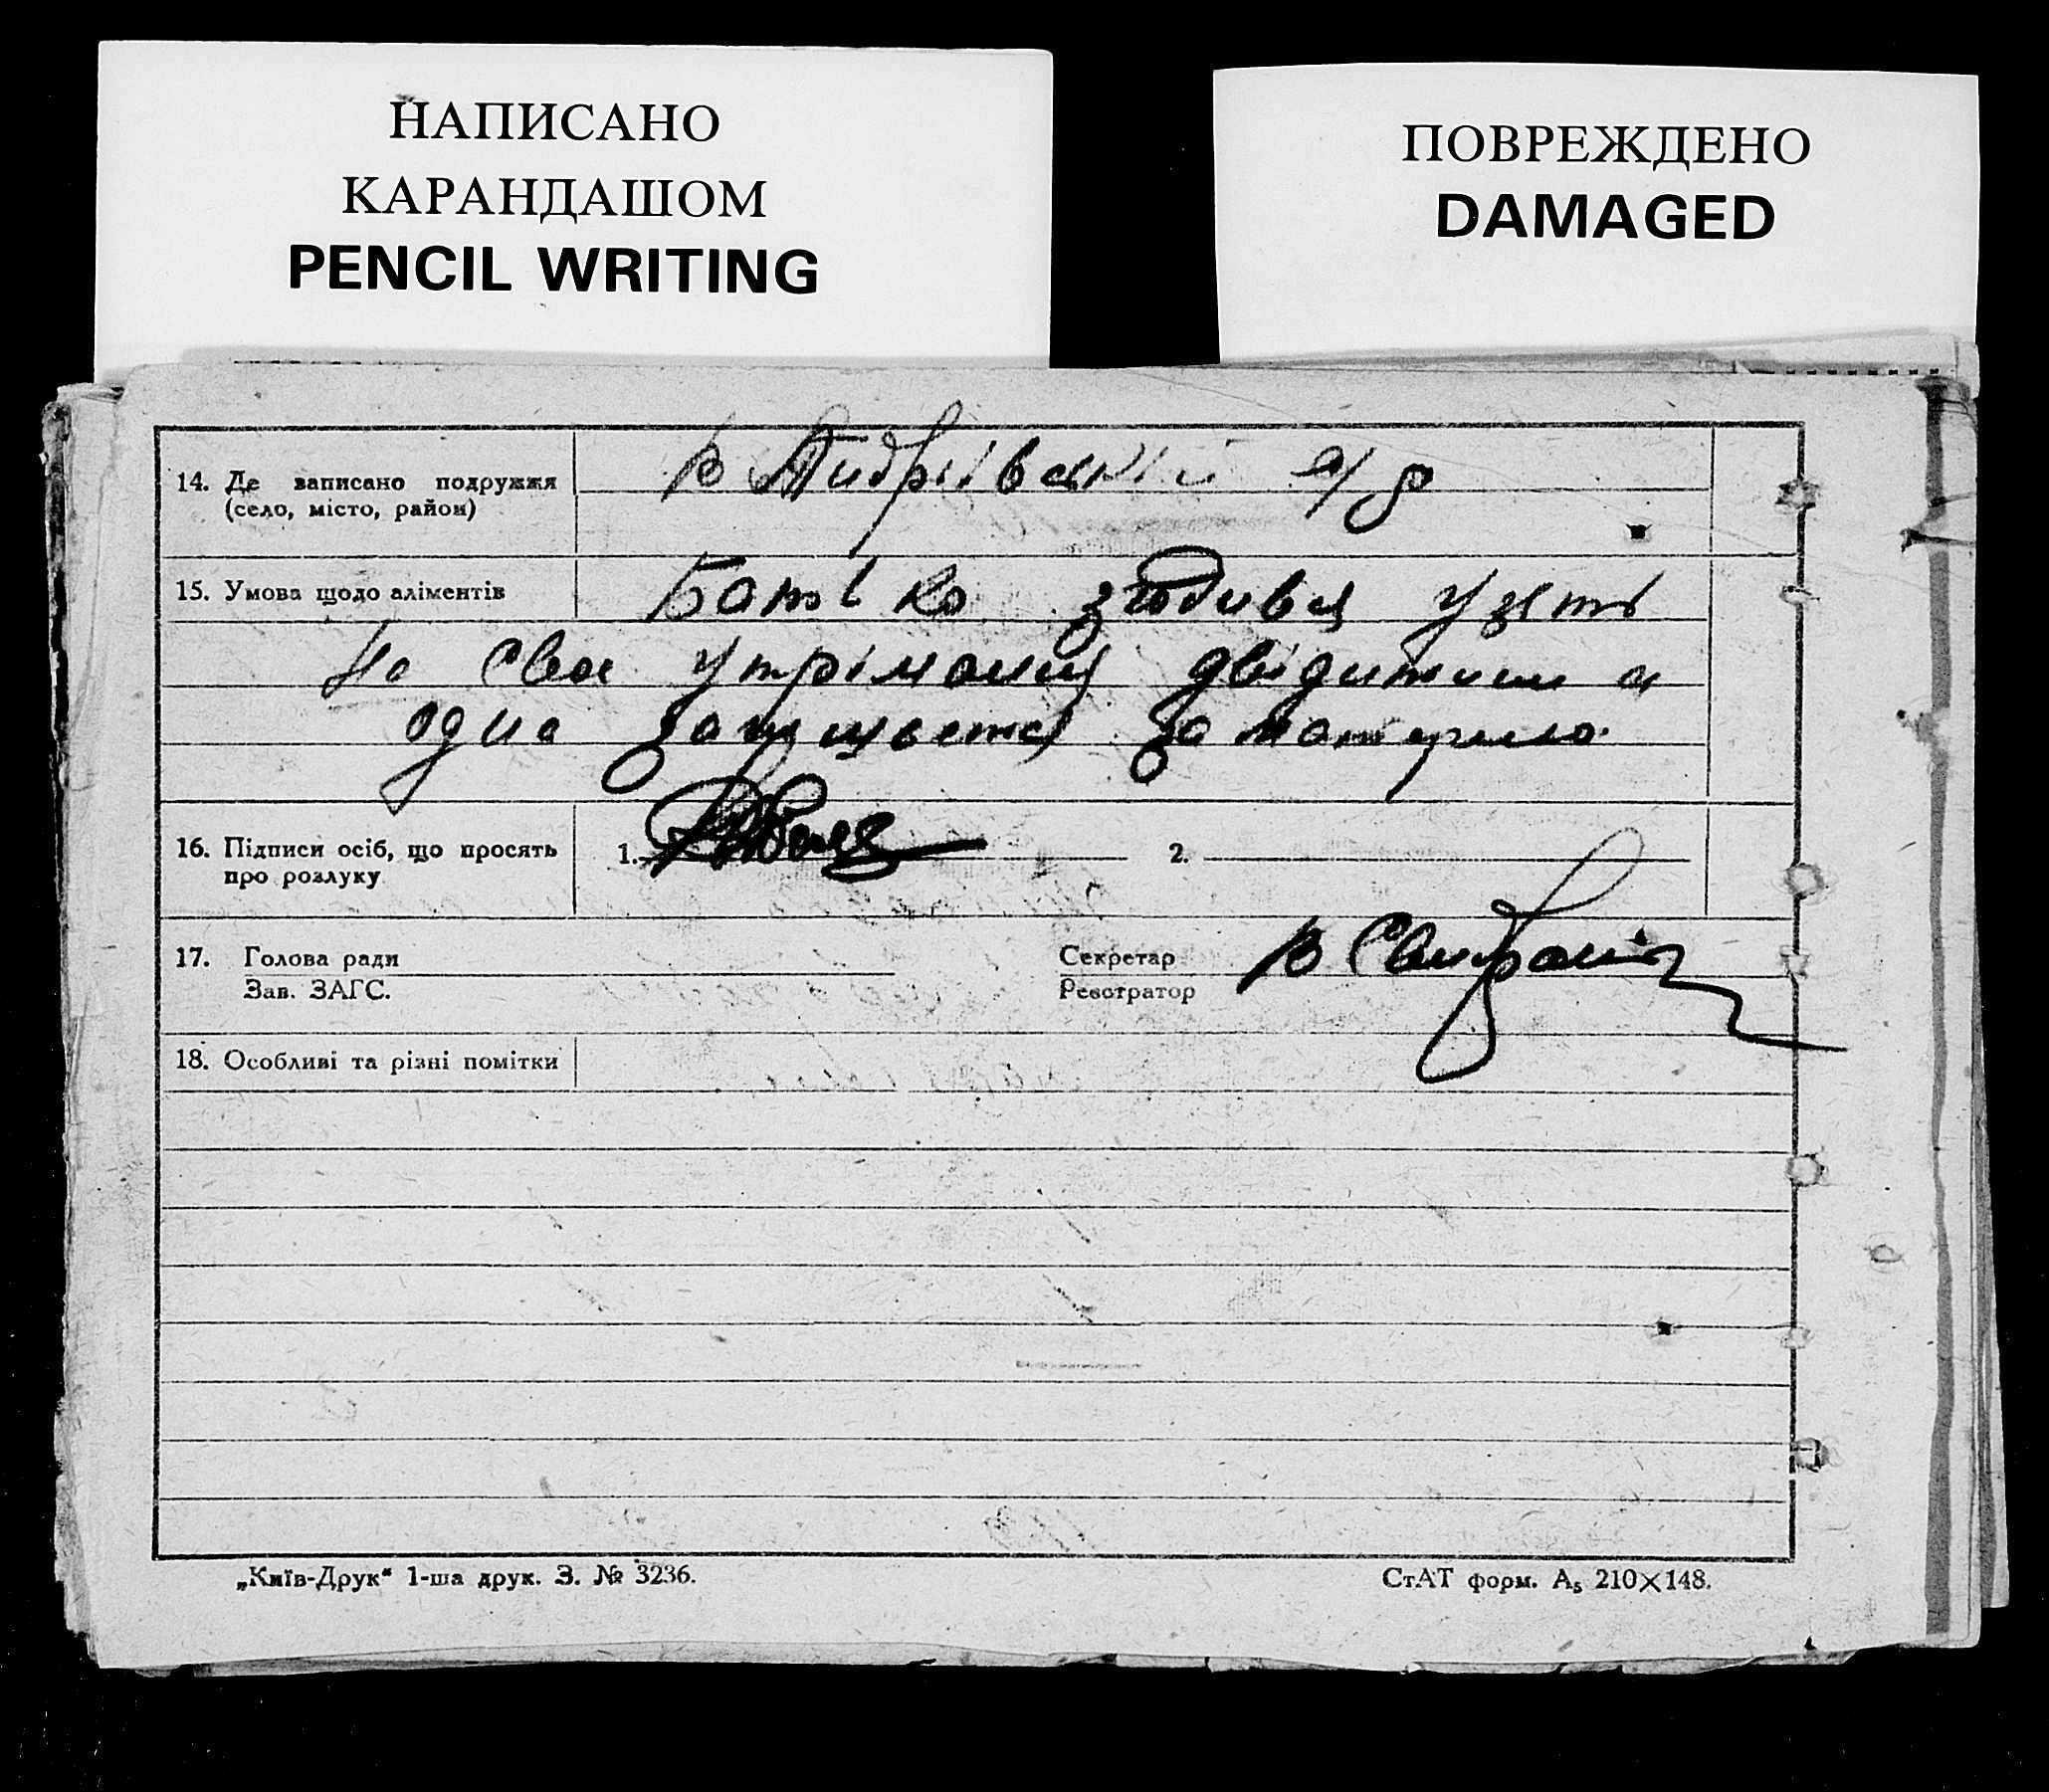 НАПИСАНО
КАРАНДАШОМ
PENCIL WRITING
ПОВРЕЖДЕНО
DAMAGED
14. Де записано подружжя
(село, місто, район)
в Андріівській с/р
15. Умова щодо аліментів
Батько згодився узять
на своє утрімання двідитини а
одна за матерью.
16. Підписи осіб, що просять
про розлуку
1.
2.
17. Голова ради
Зав. ЗАГС.
Секретар
Реєстратор
В
18. Особливі та різні помітки
„Київ-Друк“ 1-ша друк. З. № 3236.
СтАТ форм. А₅ 210×148.